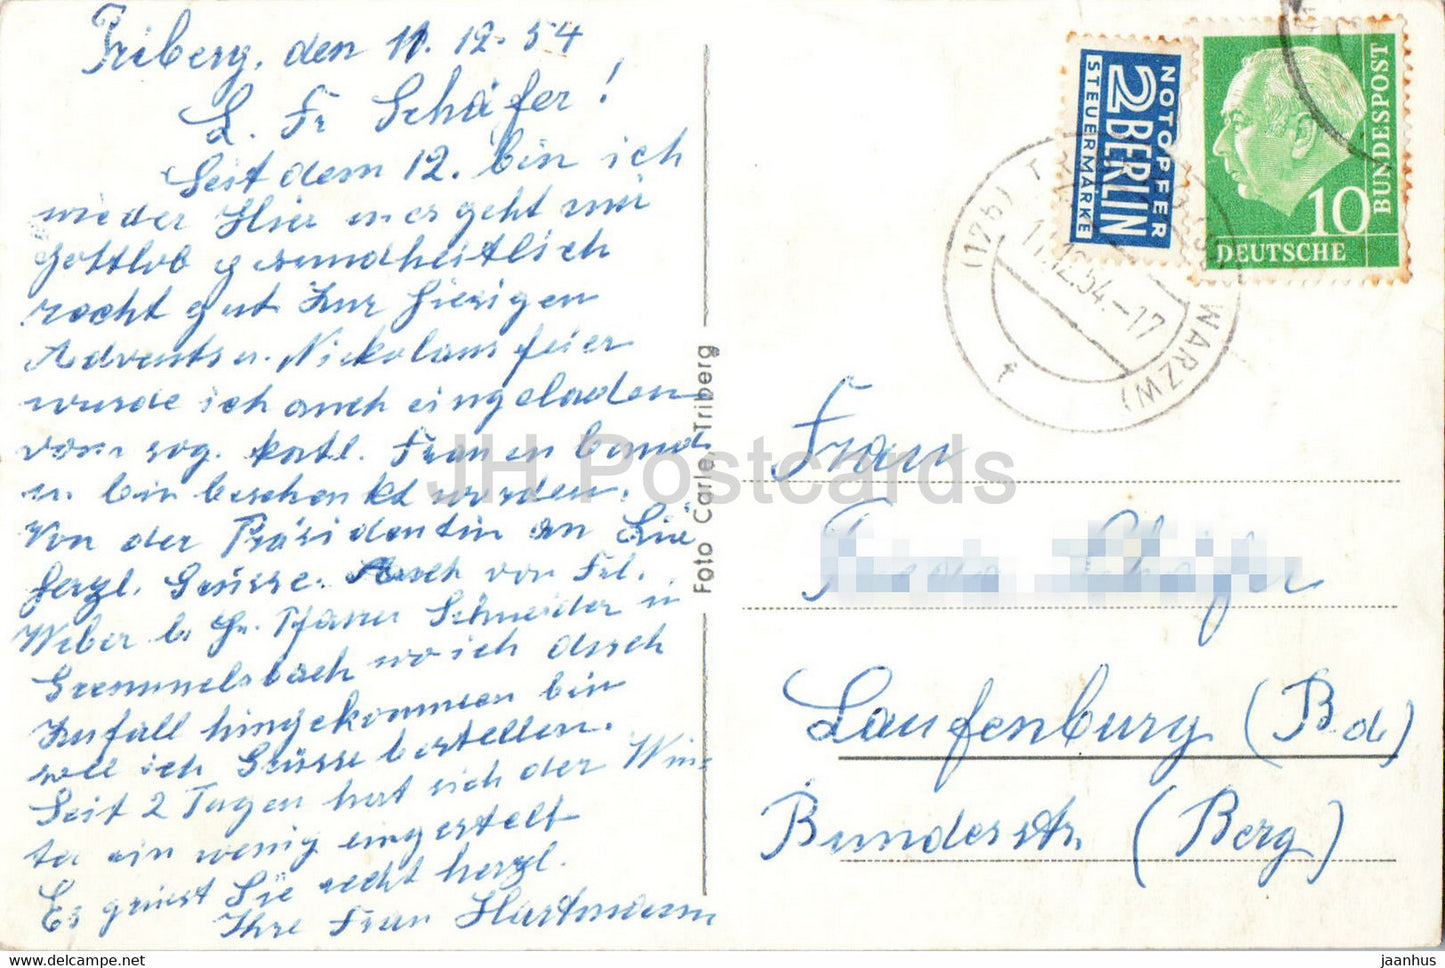 Triberg, den 11.12.54
L. Fr Schäfer!
Seit dem 12. bin ich
wieder Hier u es geht mir
Gottlob gesundheitlich
recht gut Zur hiesigen
Advents u. Nickolausfeier
wurde ich auch eingeladen
vom sog. kath. Frauenbund
u. bin beschenkt worden.
Von der Präsidentin an Sie
herzl. Grüsse. Auch von Frl.
Weber b. Hr. Pfarrer Schneider in
Gremmelsbach wo ich durch
Zufall hingekommen bin
soll ich Grüsse bestellen.
Seit 2 Tagen hat sich der Win
ter ein wenig eingestellt
Es grüsst Sie recht herzl.
Ihre Frau Hartmann
Foto Carle, Triberg
NOTOPFER
2 BERLIN
STEUERMARKE
DEUTSCHE
BUNDESPOST
10
(17b) T
WARZW)
11.12.54.-17
Frau
Laufenburg (Bd)
Bundesstr. (Berg)
JH Postcards
All-in-One-Image
jaanhus